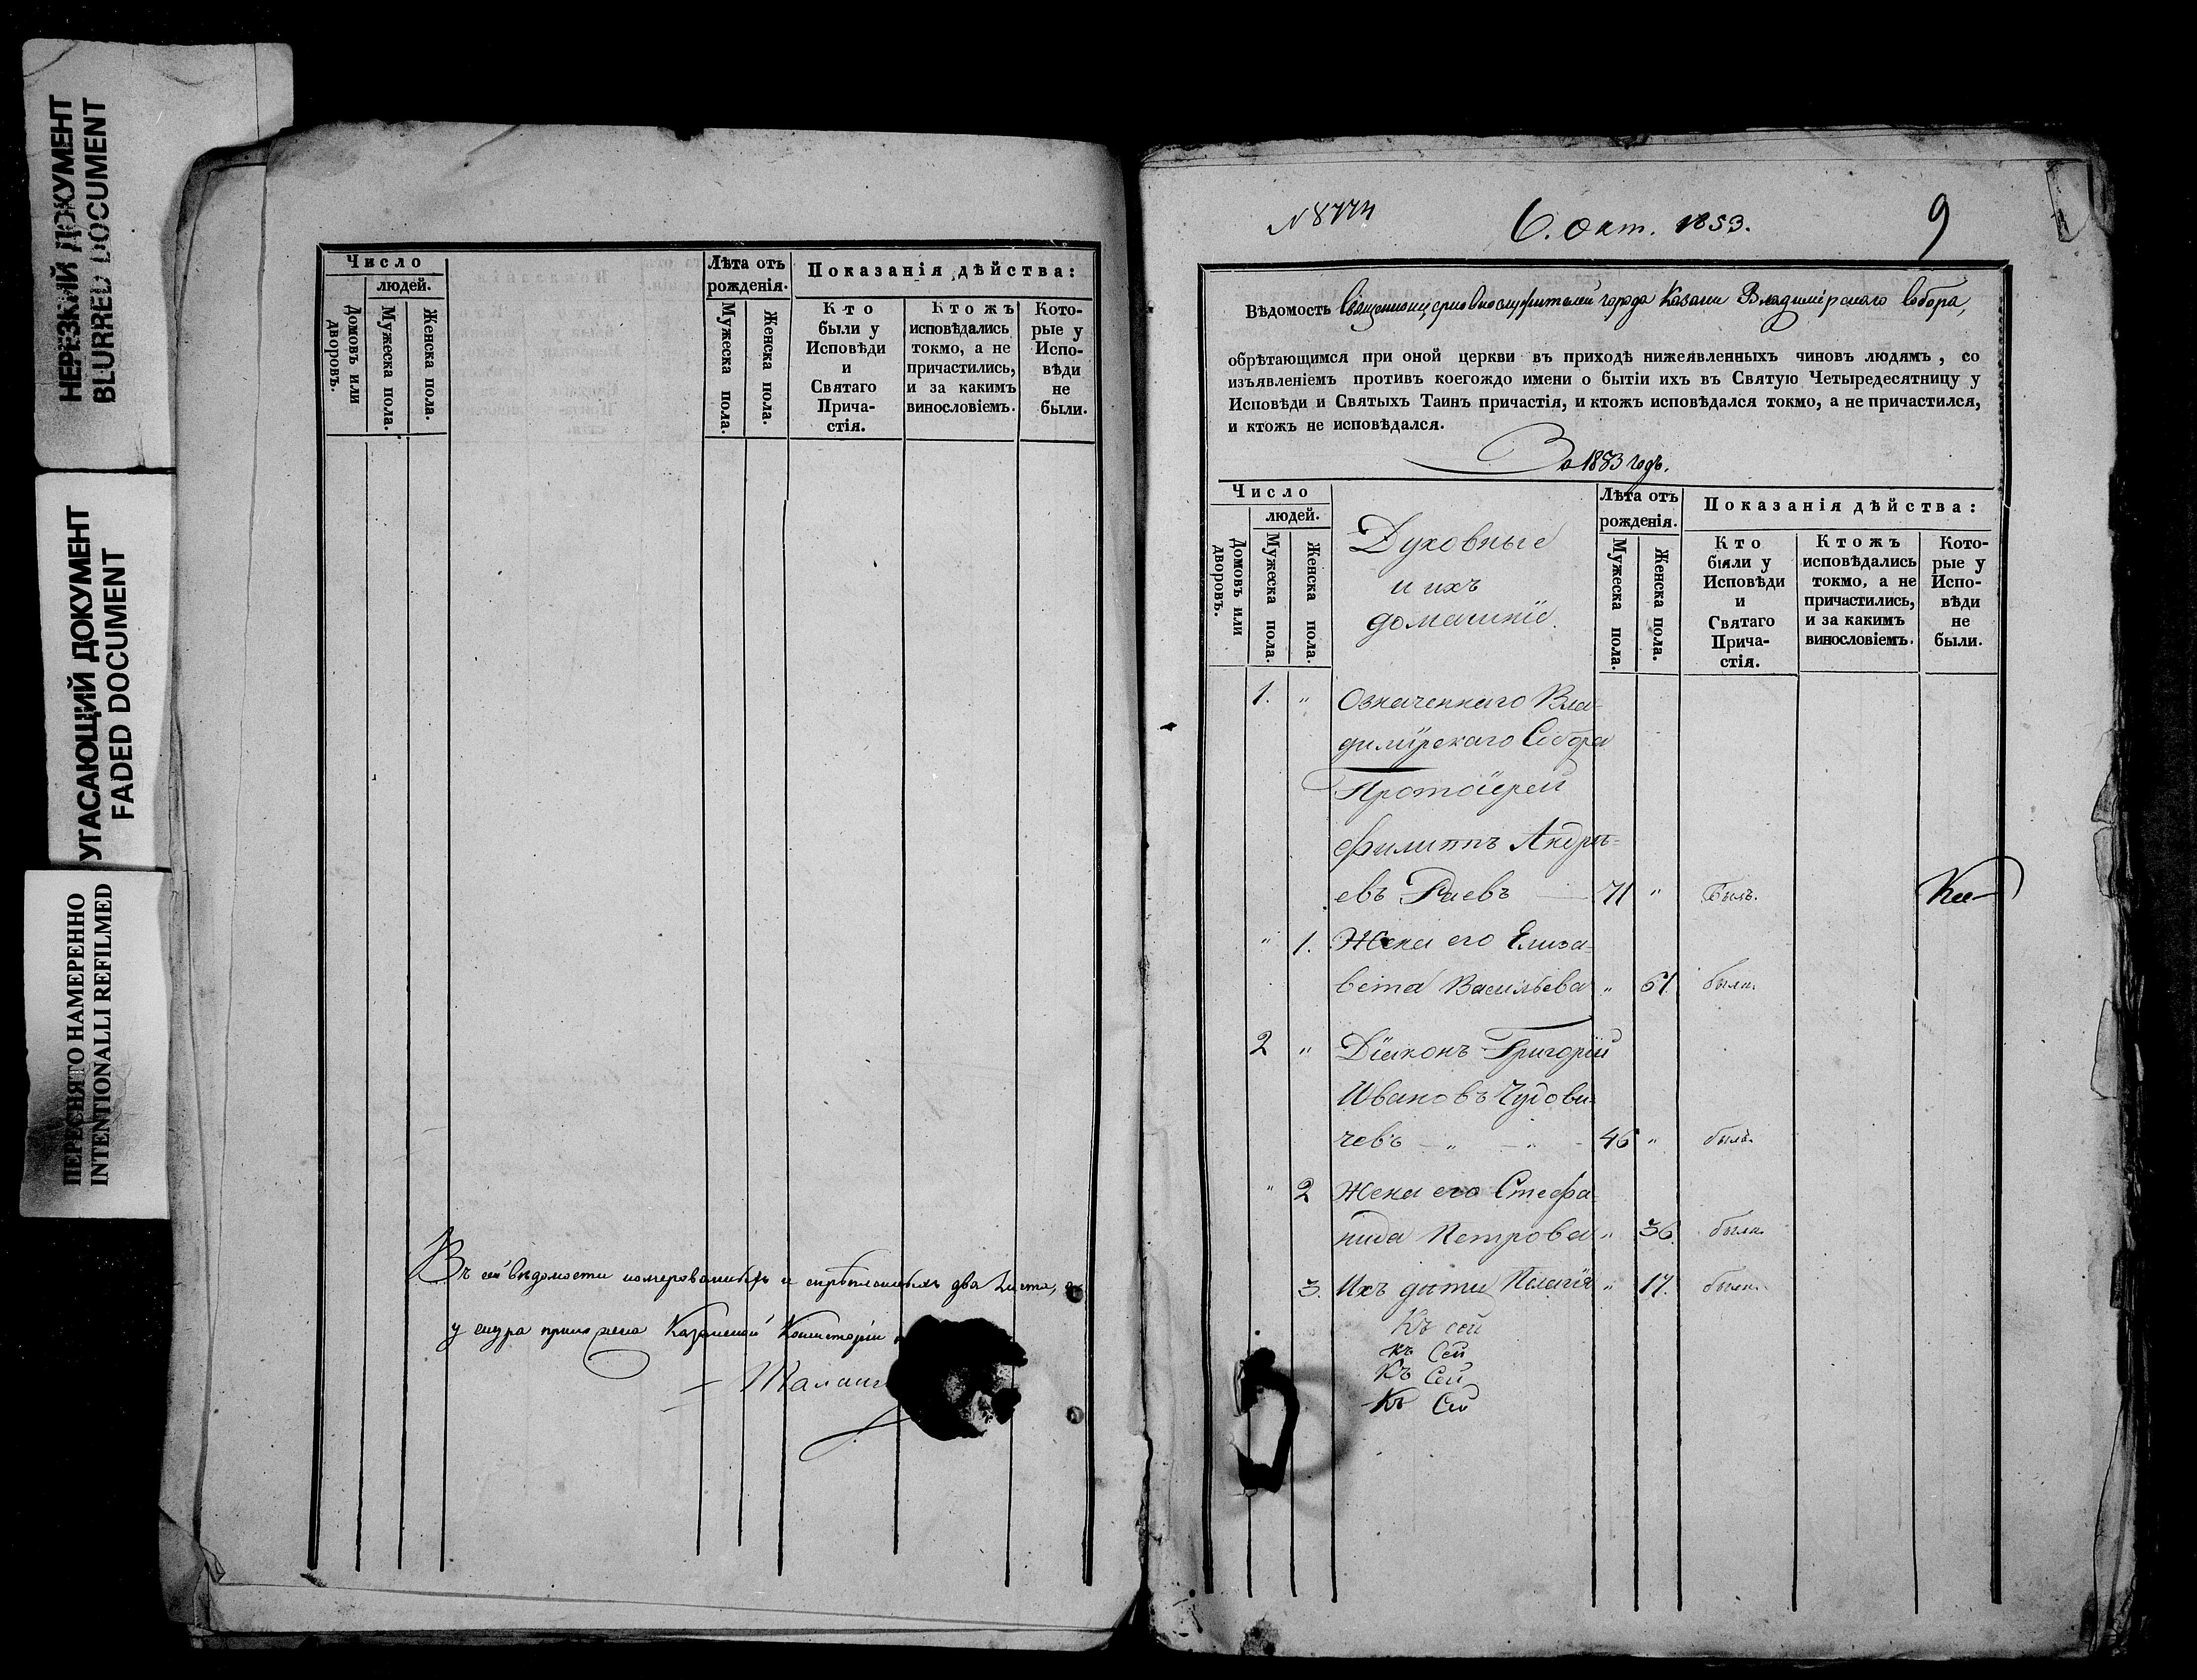 НЕРЕЗКИЙ ДОКУМЕНТ
BLURRED DOCUMENT
УГАСАЮЩИЙ ДОКУМЕНТ
FADED DOCUMENT
ПЕРЕСНЯТО НАМЕРЕННО
INTENTIONALLI REFILMED
Число
людей.
Домовъ или дворовъ.
Мужеска пола.
Женска пола.
Лѣта отъ
рожденія.
Мужеска пола.
Женска пола.
Показанія дѣйства:
Кто
были у
Исповѣди
и
Святаго
Прича-
стія.
Ктожъ
исповѣдались
токмо, а не
причастились,
и за какимъ
винословіемъ.
Кото-
рые у
Испо-
вѣди
не
были.
Въ сей вѣдомости номерованныхъ и скрѣпленныхъ два листа,
у снура приложена Казанской Консисторіи
6. Окт. 1853.
9
Вѣдомость Священноцерковнослужителей города Казани Владимірскаго Собора,
обрѣтающимся при оной церкви въ приходѣ нижеявленныхъ чиновъ людямъ, со
изъявленіемъ противъ коегождо имени о бытіи ихъ въ Святую Четыредесятницу у
Исповѣди и Святыхъ Таинъ причастія, и ктожъ исповѣдался токмо, а не причастился,
и ктожъ не исповѣдался.
За 1853 годъ.
Число
людей.
Домовъ или дворовъ.
Мужеска пола.
Женска пола.
Духовные
и ихъ
домашніе.
Лѣта отъ
рожденія.
Мужеска пола.
Женска пола.
Показанія дѣйства:
Кто
были у
Исповѣди
и
Святаго
Прича-
стія.
Ктожъ
исповѣдались
токмо, а не
причастились,
и за какимъ
винословіемъ.
Кото-
рые у
Испо-
вѣди
не
были.
1. " Означеннаго Вла-
димірскаго Собора
Протоіерей
Филиппъ Андрѣ=
евъ Раевъ — 71 " былъ.
" 1. Жена его Елиза=
вета Васильева " 61 была.
2 " Діаконъ Григорій
Ивановъ Чудови-
чевъ — " — " - 46 " былъ.
" 2 Жена его Стефа-
нида Петрова " 36. была
3. Ихъ дѣти Пелагія " 17. была.
Къ сей
къ Сей
Къ Сей
Къ Сей